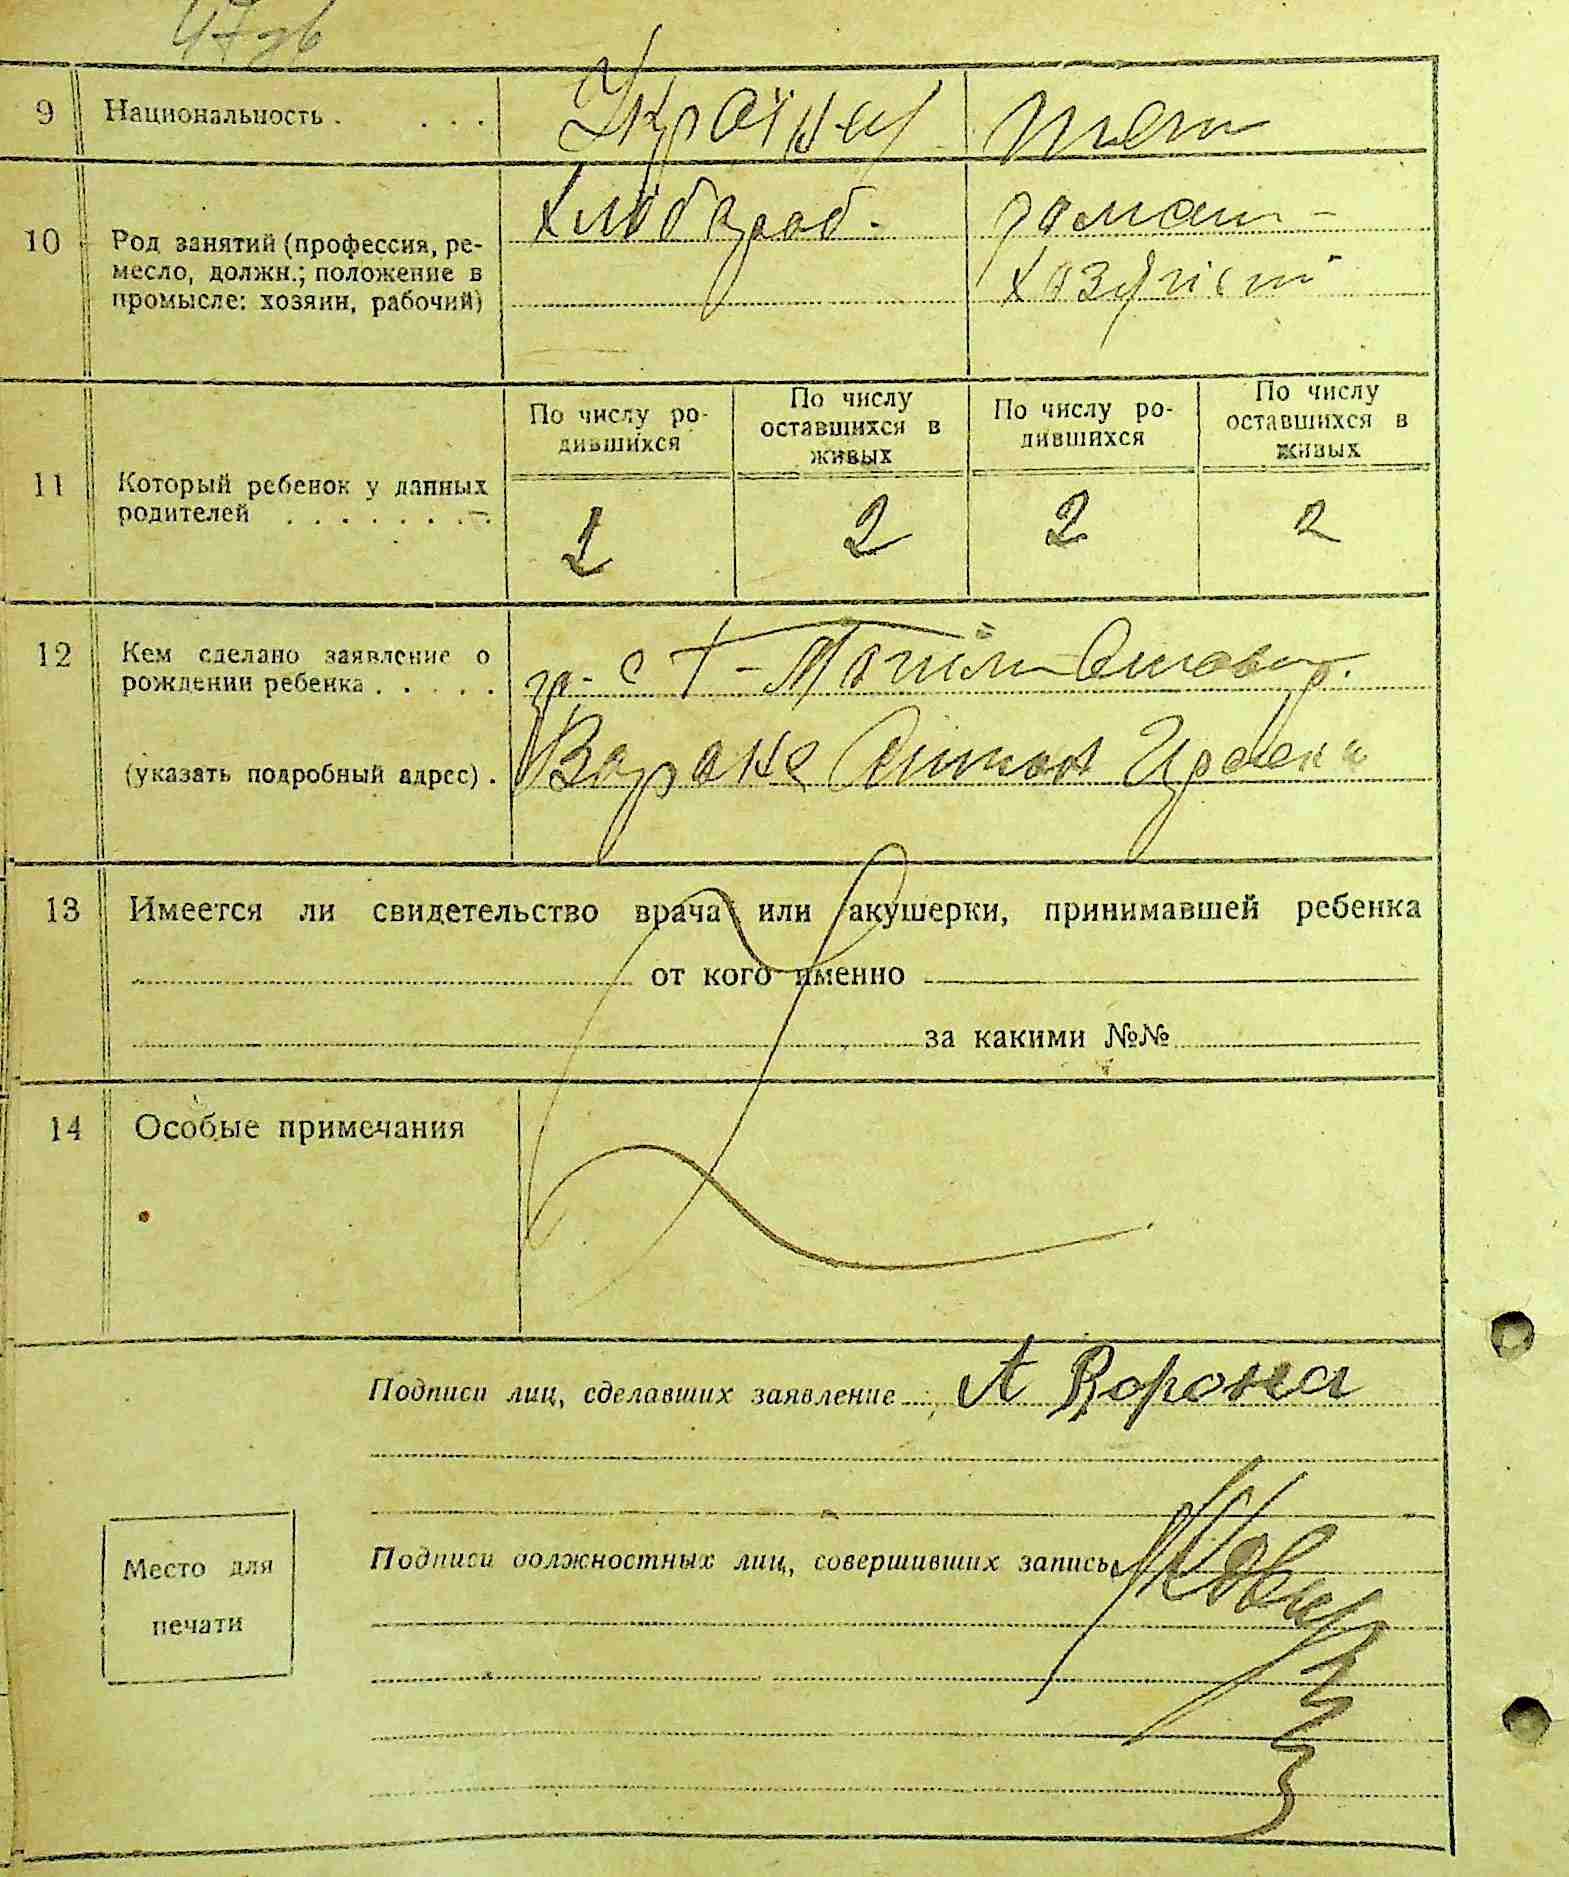 9 Национальность . . . . Украінец тоже
10 Род занятий (профессия, ре-
месло, должн.; положение в
промысле: хозяин, рабочий)
хлібороб. домаш-
хозяйст
По числу ро-
дившихся
По числу
оставшихся в
живых
По числу ро-
дившихся
По числу
оставшихся в
живых
11 Который ребенок у данных
родителей . . . . . . . .
2 2 2 2
12 Кем сделано заявление о
рождении ребенка . . . . .
(указать подробный адрес) .
Ворона Антон
13 Имеется ли свидетельство врача или акушерки, принимавшей ребенка
от кого именно
за какими №№
14 Особые примечания
Подписи лиц, сделавших заявление А Ворона
Подписи должностных лиц, совершивших запись
Место для
печати